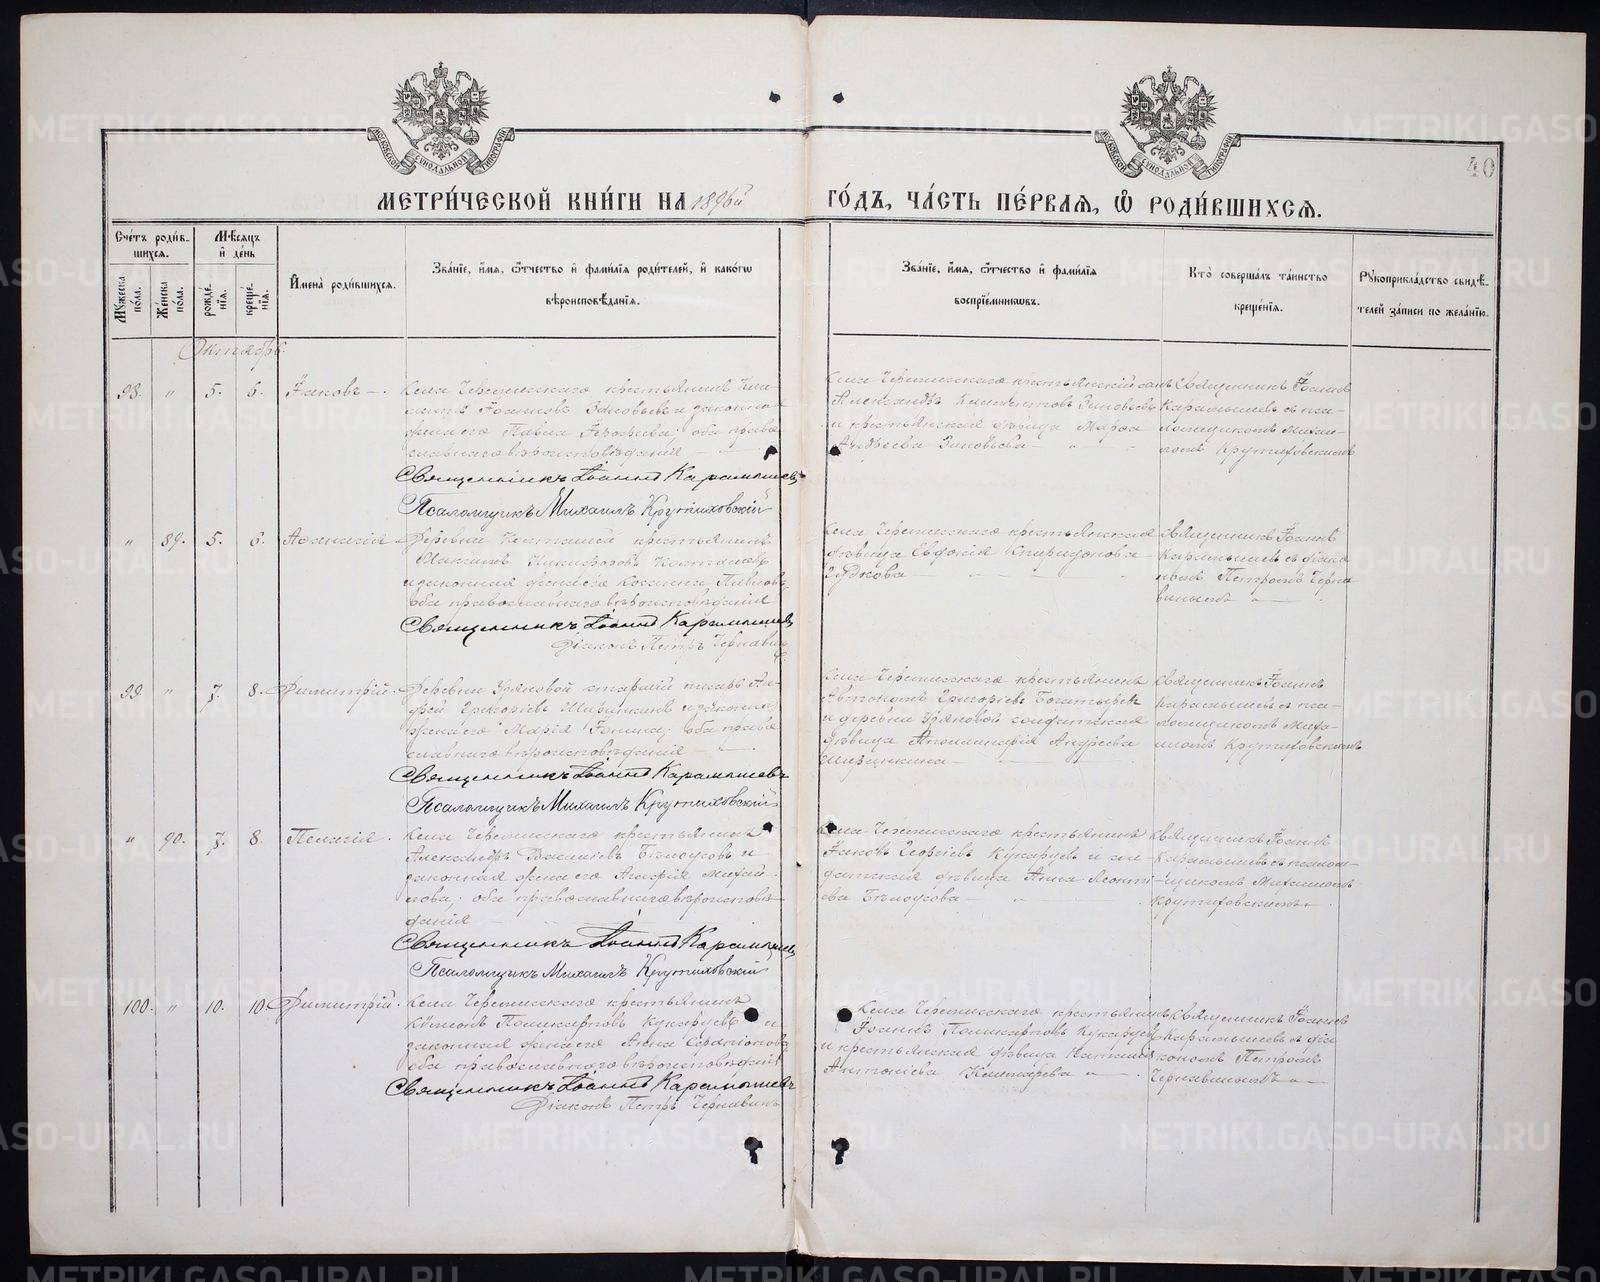 МЕТРИ́ЧЕСКОЙ КНИ́ГИ НА 1896й ГО́ДЪ, ЧА́СТЬ ПЕ́РВАЯ, Ѿ РОДИ́ВШИХСЯ.
40
Сче́тъ роди́в-
шихся.
Мѣ́сяцъ
и де́нь
Му́жеска по́ла.
Же́нска по́ла.
рожде́нія.
креще́нія.
Имена̀ роди́вшихся.
Зва́ніе, и́мя, о́тчество и фами́лія роди́телей, и како́гѡ
вѣроисповѣ́данія.
Зва́ніе, и́мя, о́тчество и фами́лія
воспріе́мникѡвъ.
Кто̀ соверша́лъ та́инство
креще́нія.
Рукоприкла́дство свидѣ́-
телей за́писи по жела́нію.
Октябрь.
98. " 5. 6. Іаковъ —.
Села Черемисскаго крестьянинъ Кли-
ментъ Іоанновъ Зиновьевъ и законная
жена его Павла Ерофеева; оба право
славнаго вѣроисповѣданія
Священникъ Іоаннъ Карамышевъ
Псаломщикъ Михаилъ Крутиховскій
Села Черемисскаго крестьянскій сынъ
Александръ Климентовъ Зиновьевъ
и крестьянская дѣвица Марѳа
Зиновьева
Священникъ Іоаннъ
Карамышевъ съ пса-
ломщикомъ Михаи-
ломъ Крутиховскимъ
" 89. 5. 6. Аѳанасія —
Деревни Колташей крестьянинъ
Максимъ Никифоровъ Колташевъ
и законная жена его Павлова
оба православнаго вѣроисповѣданія
Священникъ Іоаннъ Карамышевъ
Діаконъ Петръ Чернавинъ
Села Черемисскаго крестьянская
дѣвица Евдокія Спиридонова
Гудкова
Священникъ Іоаннъ
Карамышевъ съ діако
номъ Петромъ Черна
винымъ
99. " 7. 8. Димитрій.
Деревни старшій писарь Ан-
дрей Григорьевъ Ширинкинъ и законная
жена его Марія оба право
славнаго вѣроисповѣданія
Священникъ Іоаннъ Карамышевъ
Псаломщикъ Михаилъ Крутиховскій
Села Черемисскаго крестьянинъ
Автономъ Григорьевъ Богатыревъ
и деревни солдатская
дѣвица Аполлинарія Андреева
Ширинкина
Священникъ Іоаннъ
Карамышевъ съ пса-
ломщикомъ Миха-
иломъ Крутиховскимъ
" 90. 7. 8. Пелагія.
Села Черемисскаго крестьянинъ
Александръ Васильевъ Бѣлоусовъ и
законная жена его Агафія Михай-
лова; оба православнаго вѣроисповѣ-
данія
Священникъ Іоаннъ Карамышевъ
Псаломщикъ Михаилъ Крутиховскій
Села Черемисскаго крестьянинъ
Іаковъ Георгіевъ Кукарцевъ и сол-
датская дѣвица Анна Леонті-
ева Бѣлоусова
Священникъ Іоаннъ
Карамышевъ съ псалом-
щикомъ Михаиломъ
Крутиховскимъ
100. " 10. 10 Димитрій.
Села Черемисскаго крестьянинъ
Поликарповъ Кукарцевъ и
законная жена его Анна Серапіонова
оба православнаго вѣроисповѣданія
Священникъ Іоаннъ Карамышевъ
Діаконъ Петръ Чернавинъ
Села Черемисскаго крестьянинъ
Іоаннъ Поликарповъ Кукарцевъ
и крестьянская дѣвица Наталія
Антоніева
Священникъ Іоаннъ
Карамышевъ съ діа
кономъ Петромъ
Чернавинымъ
METRIKI.GASO-URAL.RU